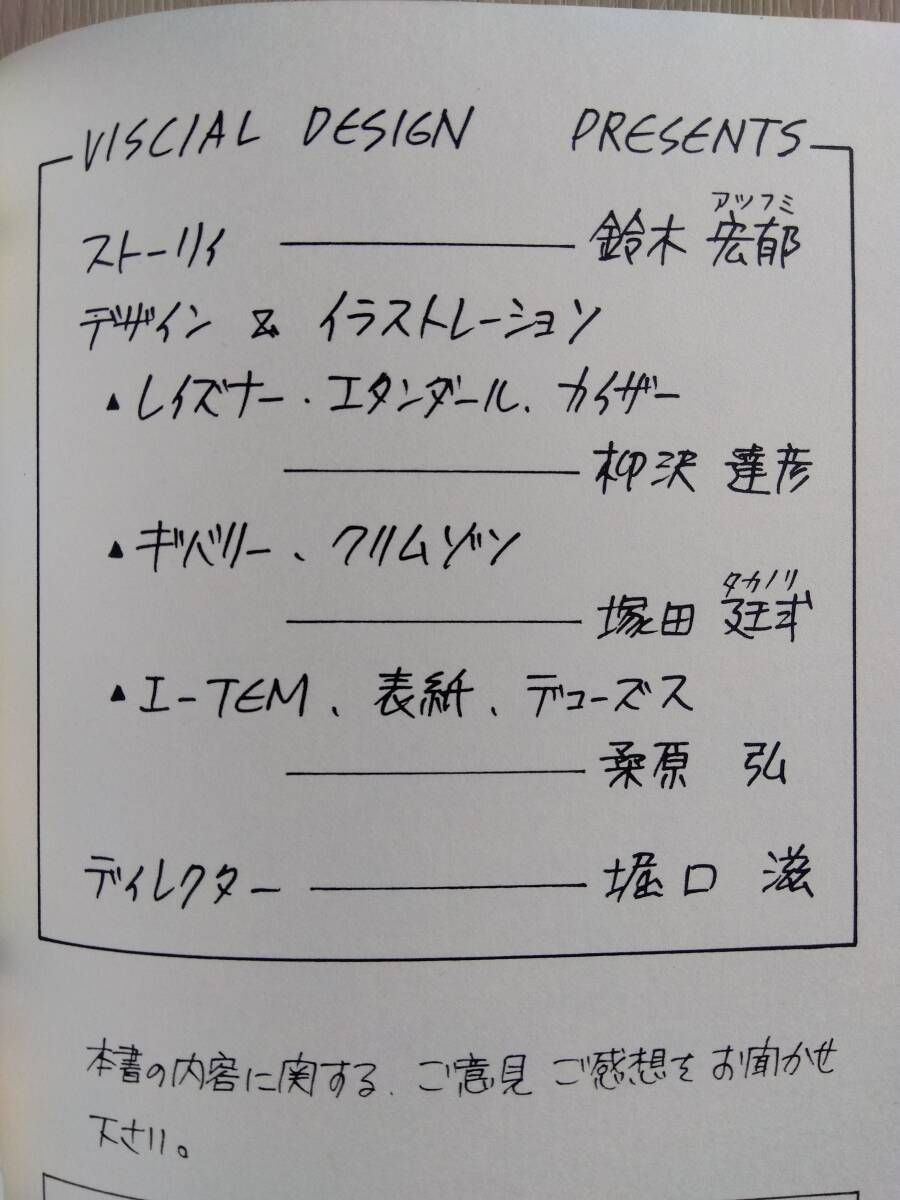 VISCIAL DESIGN PRESENTS
アツフミ
ストーリィ ―――― 鈴木 宏郁
デザイン & イラストレーション
▲レイズナー・エタンダール、カイザー
―――― 柳沢 達彦
▲ギバリー、クリムゾン
タカノリ
―――― 塚田 廷式
▲I-TEM、表紙、デューズス
―――― 桑原 弘
ディレクター ―――― 堀口 滋
本書の内容に関する、ご意見 ご感想を お聞かせ
下さい。